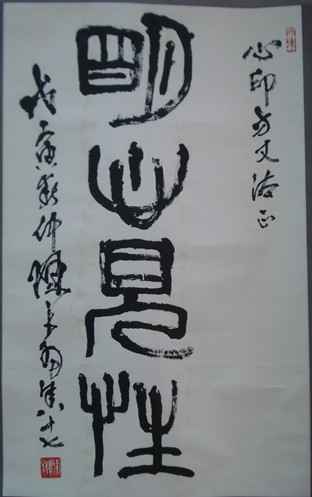 心印方丈法正
明心見性
戊寅仲陳大羽年八十七